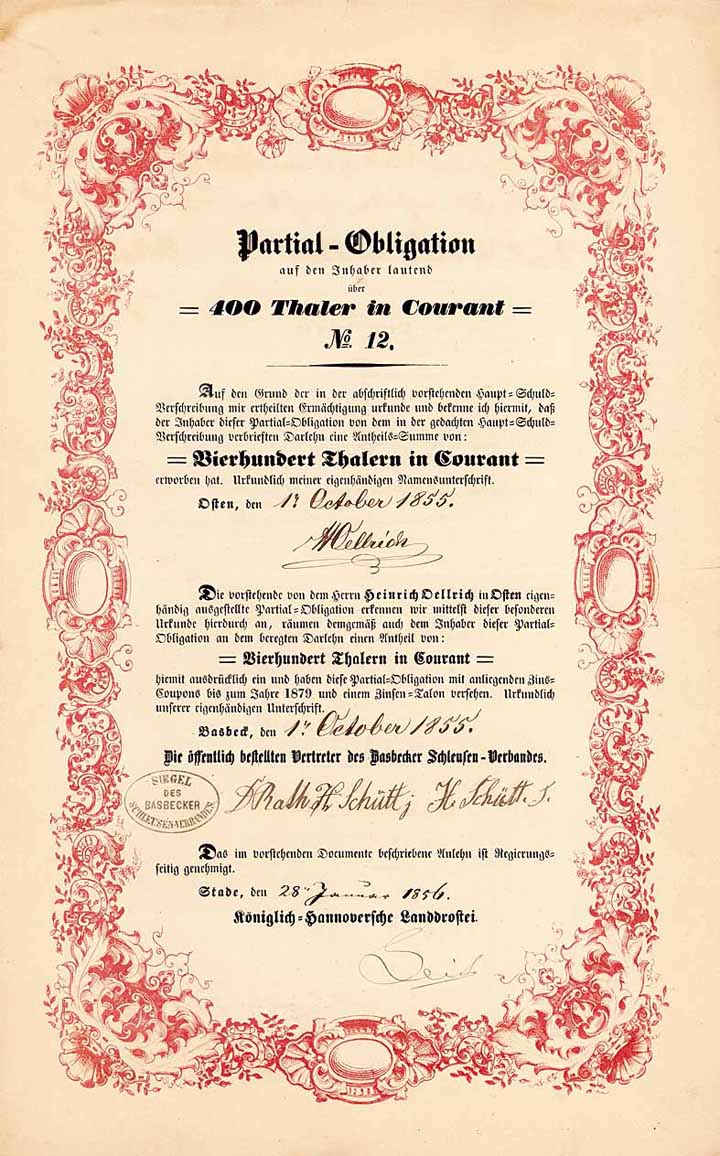 Partial-Obligation
auf den Inhaber lautend
über
= 400 Thaler in Courant =
No. 12.
Auf den Grund der in der abschriftlich vorstehenden Haupt-Schuld-
Verschreibung mir ertheilten Ermächtigung urkunde und bekenne ich hiermit, daß
der Inhaber dieser Partial-Obligation von dem in der gedachten Haupt-Schuld-
Verschreibung verbrieften Darlehn eine Antheils-Summe von:
= Vierhundert Thalern in Courant =
erworben hat. Urkundlich meiner eigenhändigen Namensunterschrift.
Osten, den 1ⁿ October 1855.
HOellrich
Die vorstehende von dem Herrn Heinrich Oellrich in Osten eigen-
händig ausgestellte Partial-Obligation erkennen wir mittelst dieser besonderen
Urkunde hierdurch an, räumen demgemäß auch dem Inhaber dieser Partial-
Obligation an dem beregten Darlehn einen Antheil von:
= Vierhundert Thalern in Courant =
hiemit ausdrücklich ein und haben diese Partial-Obligation mit anliegenden Zins-
Coupons bis zum Jahre 1879 und einem Zinsen-Talon versehen. Urkundlich
unserer eigenhändigen Unterschrift.
Basbeck, den 1ⁿ October 1855.
Die öffentlich bestellten Vertreter des Basbecker Schleusen-Verbandes.
SIEGEL
DES
BASBECKER
SCHLEUSENVERBANDES
D Rath H. Schütt j H. Schütt. S.
Das im vorstehenden Documente beschriebene Anlehn ist Regierungs-
seitig genehmigt.
Stade, den 28ⁿ Januar 1856.
Königlich-Hannoversche Landdrostei.